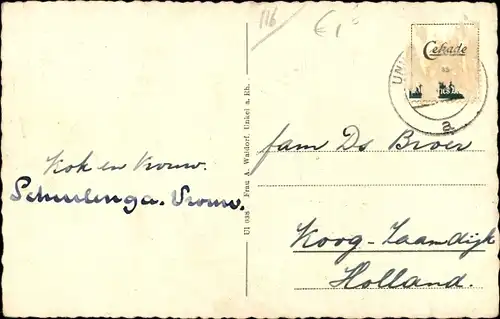 116
€ 1
Cekade
UN
a
fam Ds Broer
Kok en Vrouw.
Schulenga. Vrouw.
Koog-Zaandijk
Holland.
Ul 038 Frau A. Waldorf, Unkel a. Rh.